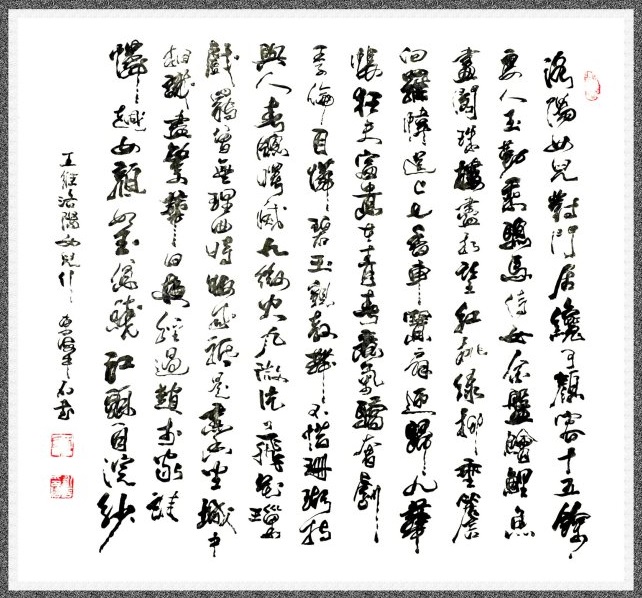 洛陽女兒對門居纔可顏容十五餘
良人玉勒乘驄馬侍女金盤鱠鯉魚
畫閣珠樓盡相望紅桃綠柳垂簷
向羅幃送上七香車寶扇迎歸九華
帳狂夫富貴在青春意氣驕奢劇
季倫自憐碧玉親教舞不惜珊瑚持
與人春牕曙滅九微火九微片片飛花璅
戲罷曾無理曲時妝成祗是熏香坐城中
相識盡繁華日夜經過趙李家誰
憐越女顏如玉貧賤江頭自浣紗
王維洛陽女兒行 書